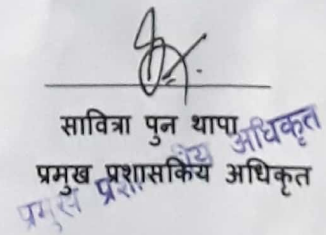 सावित्रा पुन थापा
प्रमुख प्रशासकिय अधिकृत
प्रमुख प्रशा कीय अधिकृत